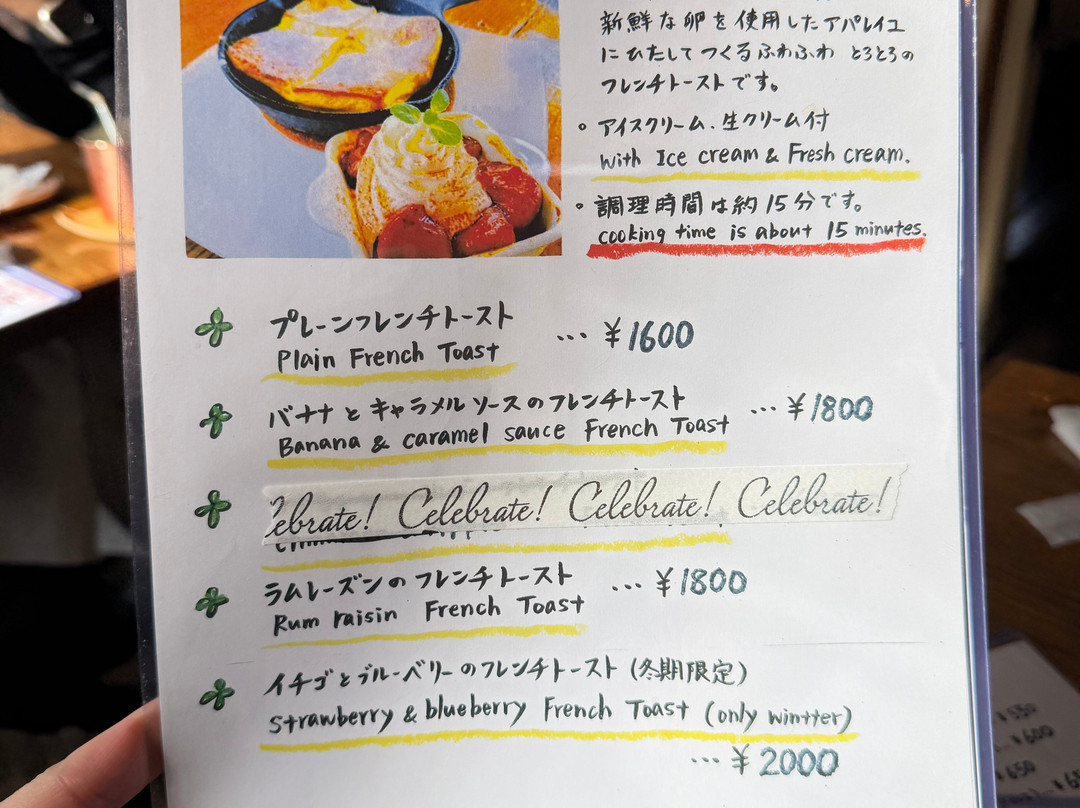 新鮮な卵を使用したアパレイユ
にひたしてつくるふわふわ とろとろの
フレンチトーストです。
。アイスクリーム、生クリーム付
with Ice cream & Fresh cream.
。調理時間は約15分です。
cooking time is about 15 minutes.
プレーンフレンチトースト
Plain French Toast
... ¥1600
バナナとキャラメルソースのフレンチトースト
Banana & caramel sauce French Toast
... ¥1800
ebrate! Celebrate! Celebrate! Celebrate!
ラムレーズンのフレンチトースト
Rum raisin French Toast
... ¥1800
イチゴとブルーベリーのフレンチトースト (冬期限定)
Strawberry & blueberry French Toast (only wintter)
... ¥2000
¥550
¥600
¥650